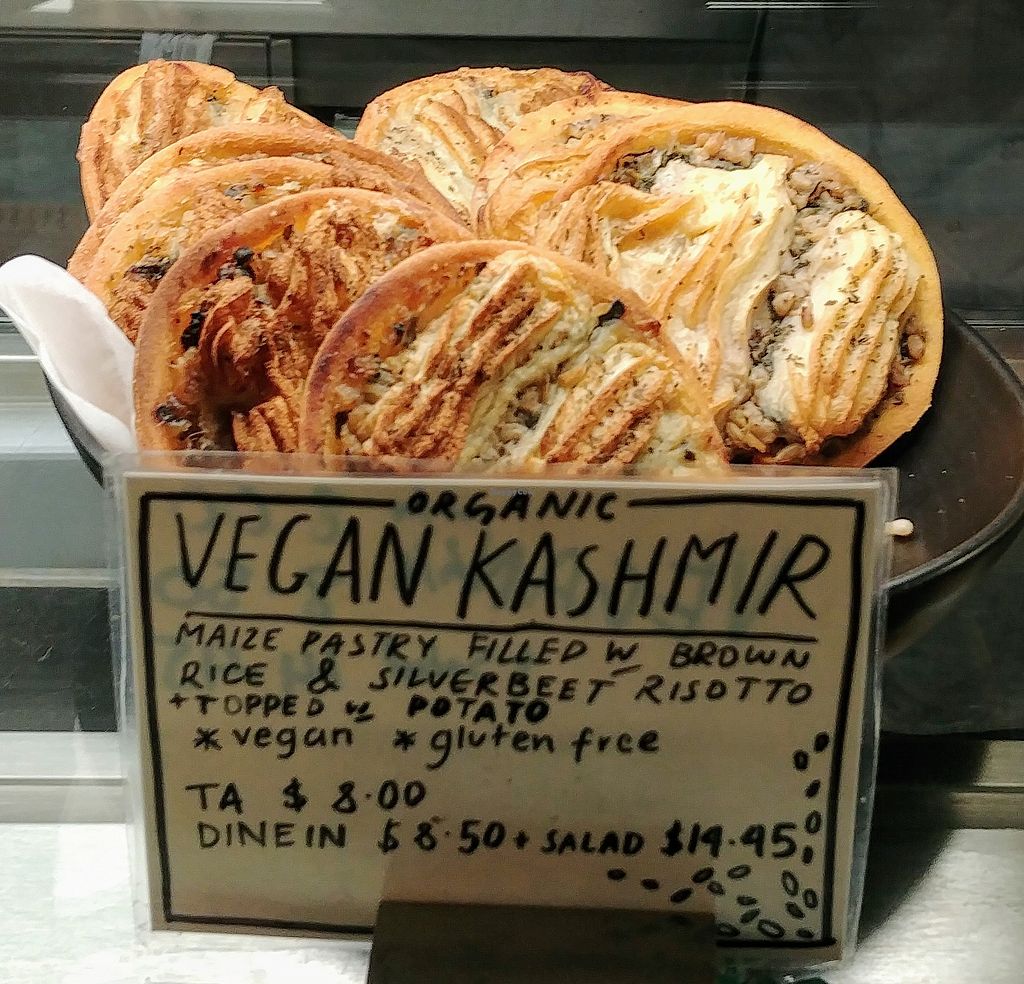 ORGANIC
VEGAN KASHMIR
MAIZE PASTRY FILLED W BROWN
RICE & SILVERBEET RISOTTO
+TOPPED W POTATO
* vegan * gluten free
TA $ 8.00
DINE IN $8.50 + SALAD $14.95